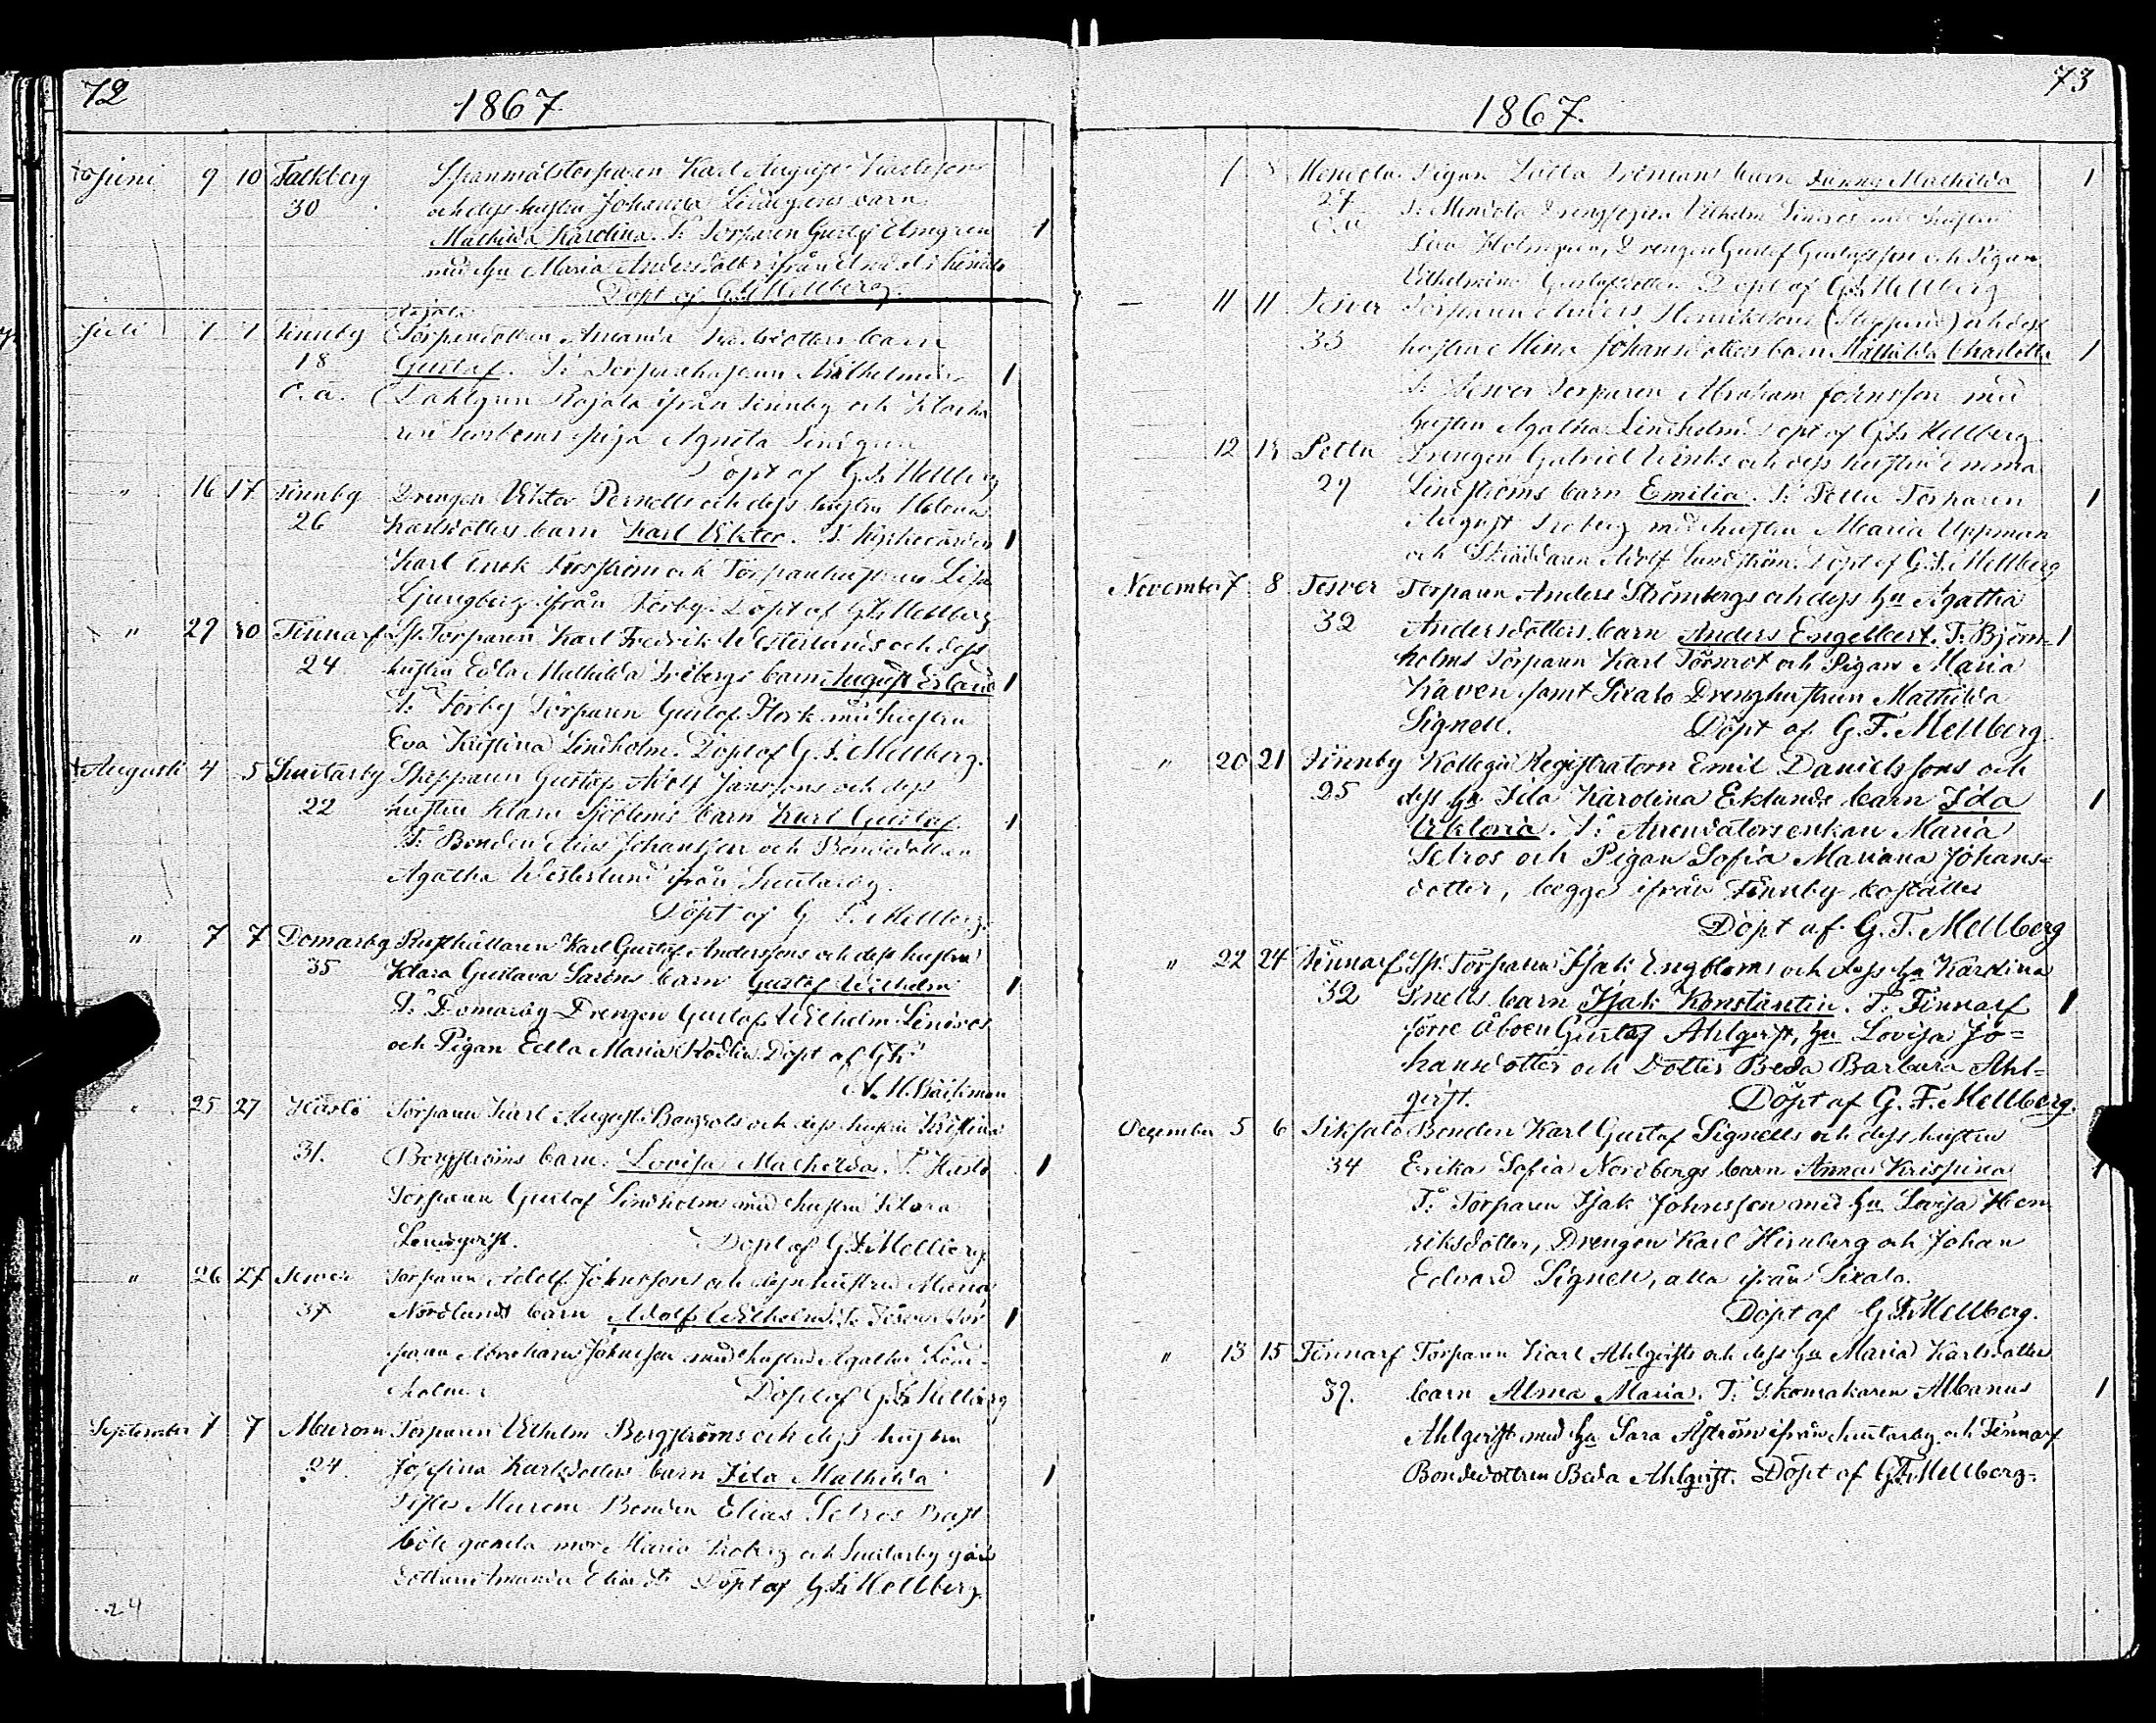 72
1867
Juni 9 10 Falkberg Spanmålstorparen Karl August
30 och dess hustru Johanna Lindgrens barn
Mathilda Karolina. T: Torparen Gustaf Elmgren 1
med hu Maria Andersdotter ifrån
Döpt af G.F. Mellberg.
Rajala
Juli 1 1 Finnby Torpardottren Amanda barn
18 Gustaf. T: Torparehustrun Wilhelmina 1
o.ä. Dahlgren Rajala ifrån Finnby och
piga Agneta Lindgren
Döpt af G.F. Mellberg
" 16 17 Finnby Drengen Viktor Pernells och dess hustru Helena
26 Karlsdotters barn Karl Viktor. T: Kyrkovärden 1
Karl Enok Forsström och Torparehustrun Lisa
Ljungberg ifrån Förby. Döpt af G.F. Mellberg
" 29 30 Finnarf Sp. Torparen Karl Fredrik Westerlunds och dess
24 hustru Edla Mathilda Fribergs barn August Erland 1
T: Förby Torparen Gustaf Stork med hustru
Eva Kristina Lindholm. Döpt af G.F. Mellberg.
Augusti 4 5 Smitarby Skepparen Gustaf Adolf Janssons och dess
22 hustru Klara Sjölunds barn Karl Gustaf 1
T: Bonden Elias Johansson och Bondedottren
Agatha Westerlund ifrån Smitarby.
Döpt af G.F. Mellberg.
" 7 7 Domarby Rusthållaren Karl Gustaf Anderssons och dess hustru
35 Klara Gustava Saréns barn Gustaf Wilhelm 1
T: Domarby Drengen Gustaf Wilhelm Lindros
och Pigan Edla Maria Rödlin. Döpt af
A. M. Bäckman
" 25 27 Hästö Torparen Karl August och dess hustru Kristina
31. Bergströms barn Lovisa Mathilda. T: Hästö 1
Torparen Gustaf Lindholm med hustru Klara
Lindqvist. Döpt af G.F. Mellberg.
" 26 27 Tesver Torparen Adolf Johnssons och dess hustru Maria
37 Nordlunds barn Adolf Wilhelm. T: Tesver Tor 1
paren Abraham Johnsson med hustru Agatha Lind-
holm. Döpt af G.F. Mellberg
September 7 7 Murom Torparen Vilhelm Bergströms och dess hustru
24 Josefina Karlsdotters barn Ida Mathilda 1
Testes Murom Bonden Elias Selros Bast
böle gamla mor Maria Froberg och Smitarby går
dottren Amanda Döpt af G.F. Mellberg.
24
73
1867.
Mendola Pigan Lotta barn Fanny Mathilda 1
27 T: Mendola Drengen Vilhelm Lindros med hustru
o.ä. Holmgren, Drengen Gustaf Gustafsson och Pigan
Vilhelmina Gustafsdotter. Döpt af G.F. Mellberg
11 11 Tesver Torparen Anders Henrikssons (Skeppare) och dess
33 hustru Mina Johansdotters barn Mathilda Charlotta 1
T: Tesver Torparen Abraham Johnsson med
hustru Agatha Lindholm. Döpt af G.F. Mellberg
12 13 Pettu Drengen Gabriel och dess hustru Emma
29 Lindströms barn Emilia. T: Pettu Torparen 1
August Froberg med hustru Maria Uppman
och Skräddaren Adolf Lundström. Döpt af G.F. Mellberg
November 7 8 Tesver Torparen Anders Strömbergs och dess hu Agatha
32 Andersdotters barn Anders Engelbert. T: Björn- 1
holms Torparen Karl Törnrot och Pigan Maria
Kaven samt Sixalo Drenghustrun Mathilda
Signell. Döpt af G.F. Mellberg
" 20 21 Finnby Kollegii Registratorn Emil Danielssons och
25 dess hu Ida Karolina Eklunds barn Ida 1
Viktoria. T: Arrendatorsenkan Maria
Selros och Pigan Sofia Mariana Johans-
dotter, begge ifrån Finnby boställe
Döpt af G.F. Mellberg
" 22 24 Finnarf Sp. Torparen Isak Engbloms och dess hu Karolina
32 Snells barn Isak Konstantin. T: Finnarf 1
förre Åboen Gustaf Ahlqvist, hu Lovisa Jo-
hansdotter och Dotter Beda Barbara Ahl-
qvist. Döpt af G.F. Mellberg.
December 5 6 Siksalo Bonden Karl Gustaf Signells och dess hustru
34 Erika Sofia Nordbergs barn Anna Krispina 1
T: Torparen Isak Johnsson med hu Lovisa Hen
riksdotter, Drengen Karl Hirnberg och Johan
Edvard Signell, alla ifrån Sixalo.
Döpt af G.F. Mellberg.
" 13 15 Finnarf Torparen Karl Ahlqvists och dess hu Maria Karlsdotters
39. barn Alma Maria. T: Skomakaren Albanus 1
Ahlqvist med hu Sara Åström ifrån Smitarby och Finnarf
Bondedottren Beda Ahlqvist. Döpt af G.F. Mellberg.